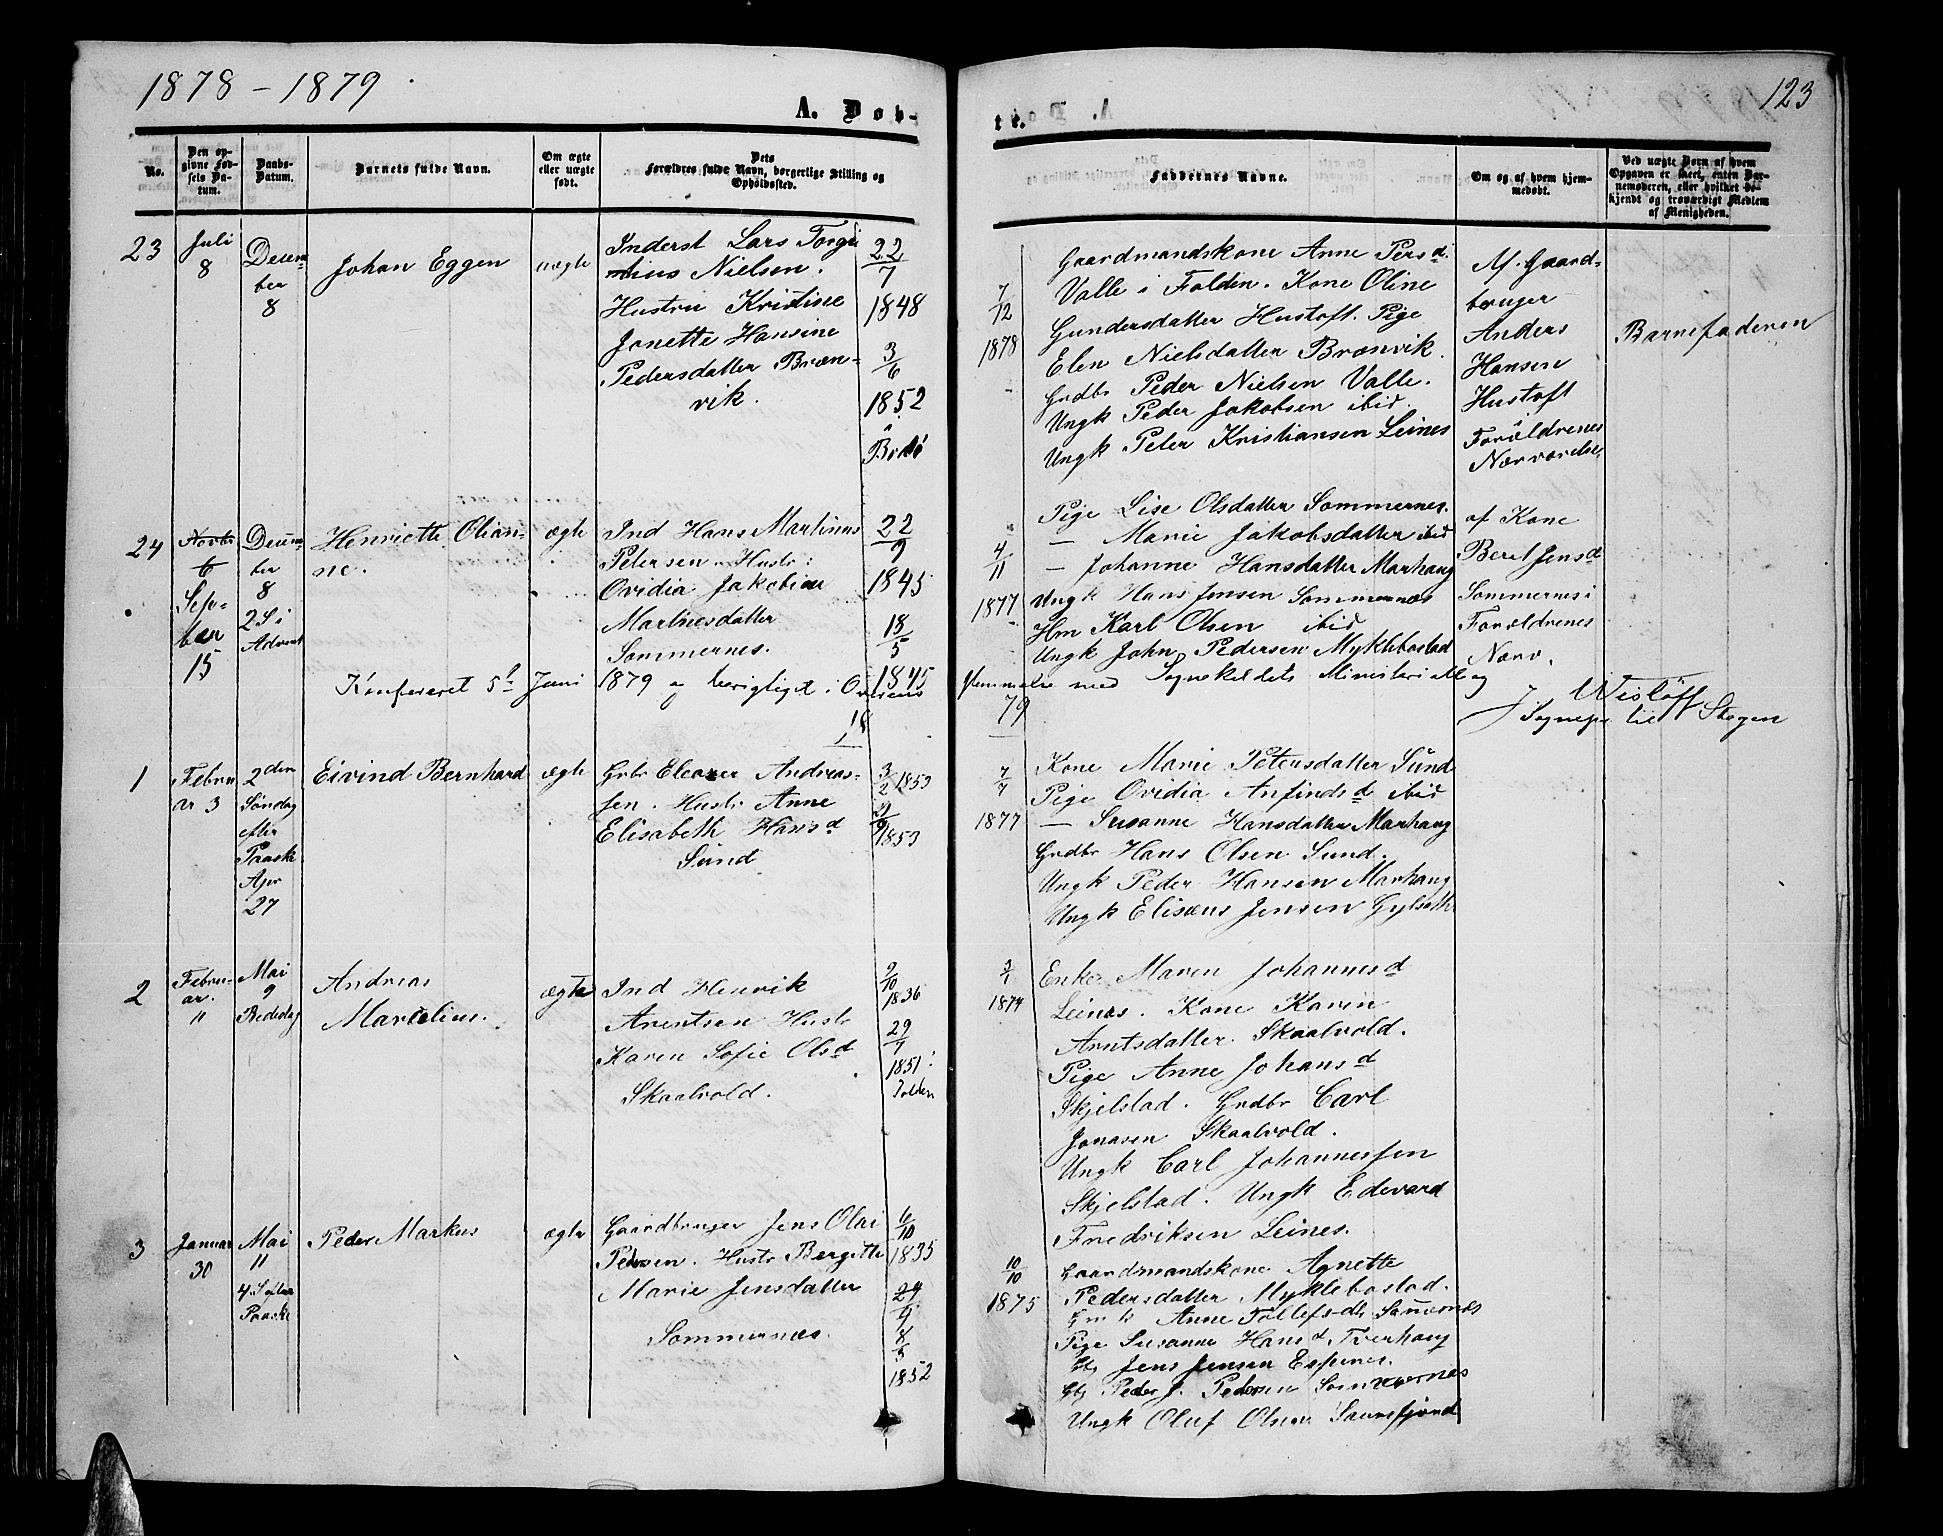 1878 - 1879
A. Døb-
No.
Den op-
givne Fød-
sels Da-
tum.
Daabs-
Datum.
Barnets fulde Navn.
Om ægte
eller uægte
født.
Dets
Forældres fulde Navn, borgerlige Stilling og
Opholdssted.
23
Juli
8
Decem-
ber
8
Johan Eggen
uægte
Inderst Lars Torgi
Nielsen.
Hustru Kristine
Jonette Hansine
Pedersdatter Bræn-
vik.
22
7
1848
3
6
1852
Bodø
24
Novbr
6
Sep-
ber
15
Decem-
ber
8
2 S i
Advent
Henriette Olian-
ne.
ægte
Ind Hans Martinus
Petersen. Hustr:
Ovidia Jakobine
Martinesdatter
Sommernes.
22
9
1845
18
5
1845
Konfereret 5t Juni 1879 og berigtiget i Overens
18
1
Februar
ar 3
2den
Søndag
efter
Paaske
Apr
27
Eivind Bernhard
ægte
Grbr Eleazer Andreas-
sen. Hustr Anne
Elisabeth Hansd
Sund
3
2 1853
9 1853
2
Febru-
ar.
11
Mai
9
Bededag
Andreas
Marcelius.
ægte
Ind Henrik
Arentsen Hustr
Karen Sofie Olsd
Skaalvold.
9
10
1836
29
7
1851
Folden
3
Januar
30
Mai
11
4. S efter
Paaske
Peder Markus
ægte
Gaardbruger Jens Olai
Pedersen. Hustr Bergitte
Marie Jensdatter
Sommernæs.
6
10
1835
24
9
8
5
1852
123
te.
Faddernes Navne.
Om og af hvem hjem-
medøbt.
Ved uægte Børn af hvem
Opgaven er skeet, enten Bar-
nemoderen, eller hvilket be-
kjendt og troværdigt Medlem
af Menigheden.
7
12
1878
Gaardmandskone Anne Persd.
Valle i Folden. Kone Oline
Gundersdatter Hustoft. Pige
Elen Nielsdatter Brænvik.
Grdbr Peder Nielsen Valle.
Ungk Peder Jakobsen ibid.
Ungk Peter Kristiansen Leines
Af Gaard-
bruger
Anders
Hansen
Hustoft
Forældrenes
Nærværelse
Barnefaderen
4
11
1877
Pige Lise Olsdatter Sommernes.
— Marie Jakobsdatter ibid
— Johanne Hansdatter Marhaug
Ungk Hans Jensen Sommernæs
Hm Karl Olsen ibid
Ungk John Pedersen Myklebostad
af Kone
Beret Jensd
Sommernes i
Forældrenes
Nærv.
stemmelse med Sognekaldets Ministerialbog
79
J. Wisløff
Sognepr. til Stegen
7
7
1877
Kone Marie Petersdatter Sund
Pige Ovidia Anfindsd ibid
— Susanne Hansdatter Marhaug
Grdbr Hans Olsen Sund.
Ungk Peder Hansen Marhaug
Ungk Elisæus Jensen Gylseth
3
1
1874
Enke Maren Johannesd
Leines. Kone Karen
Arntsdatter Skaalvold.
Pige Anne Johansd
Skjelstad. Grdbr Carl
Jonasen Skaalvold.
Ungk Carl Johannessen
Skjelstad. Ungk Edevard
Fredriksen Leines.
10
10
1875
Gaardmandskone Agnette
Pedersdatter Myklebostad.
Gm k Anne Tollefsdtr
Pige Susanne Hansd Tverhaug
Gbr Jens Jensen Espenes.
Gbr Peder J. Pedersen Sommernes
Ungk Oluf Olsen